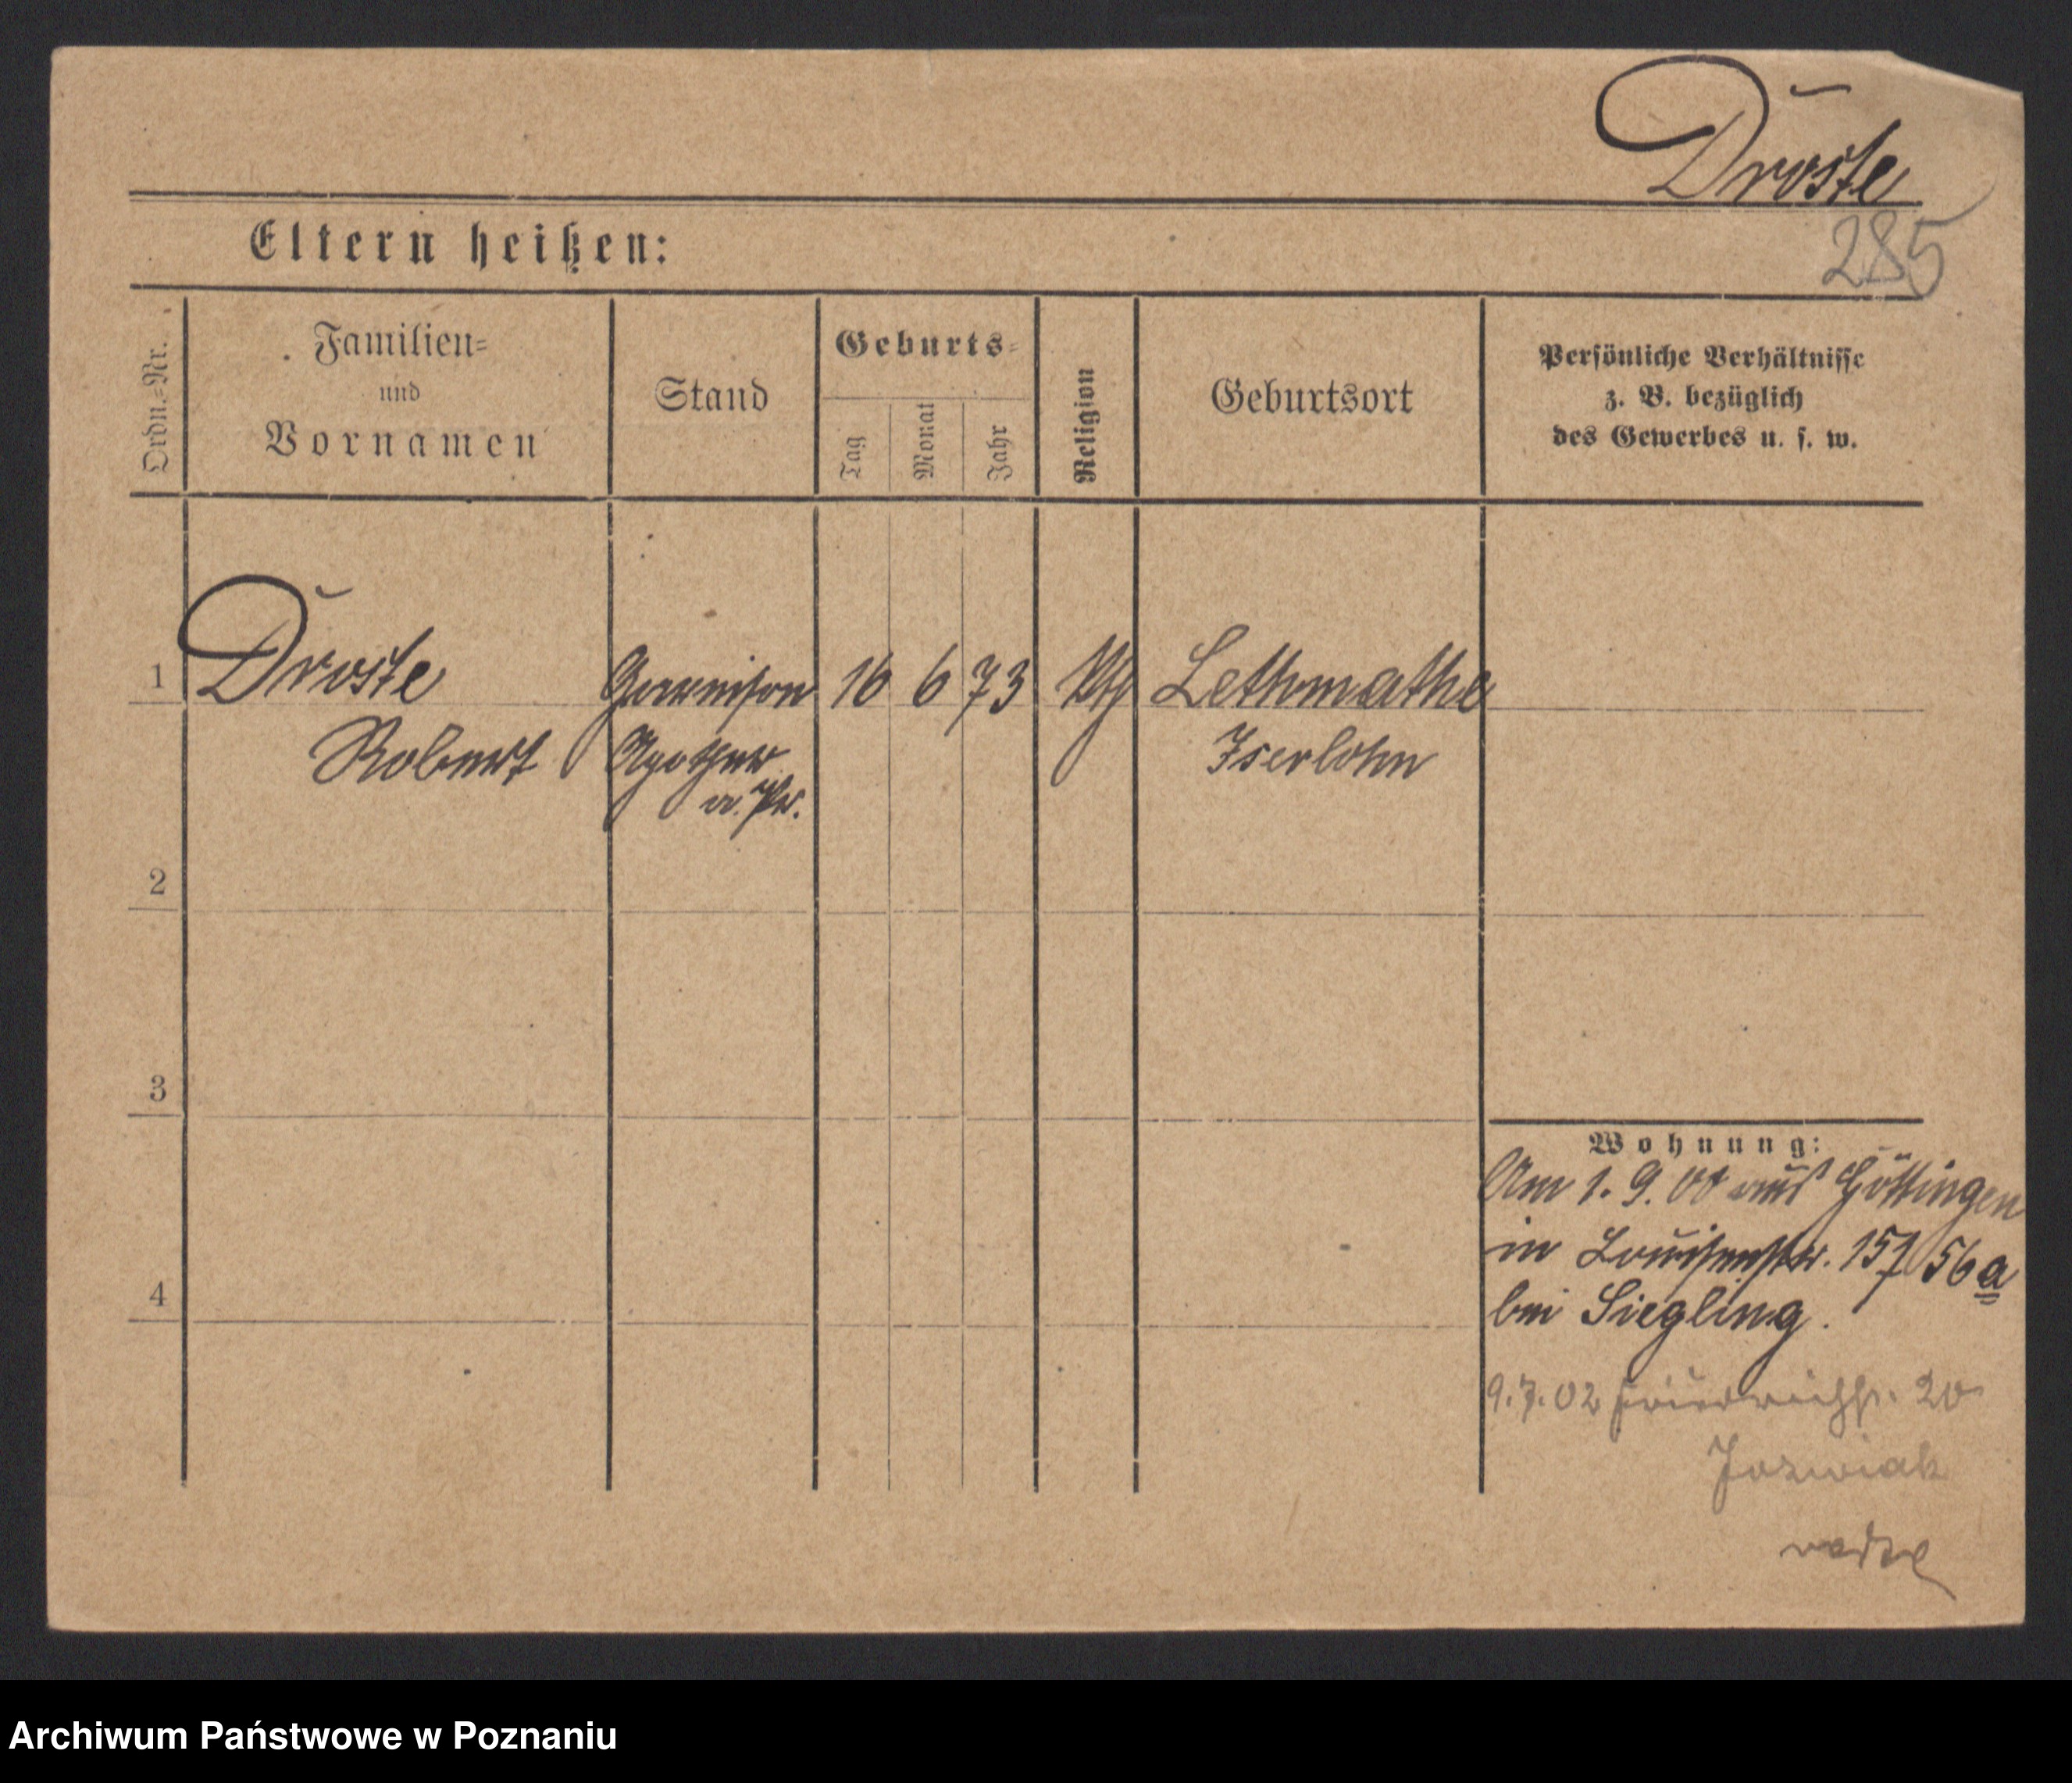 Droste
285
Eltern heißen:
Ordn.-Nr.
Familien-
und
Vornamen
Stand
Geburts-
Tag
Monat
Jahr
Religion
Geburtsort
Persönliche Verhältnisse
z. B. bezüglich
des Gewerbes u. s. w.
1 Droste Garnison 16 6 73 kth Lethmathe
Robert Apotheker Iserlohn
2
3
4
Wohnung:
Am 1. 9. 00 aus Göttingen
in Louisenstr. 157 56a
bei Siegling.
9.7.02 Friedrichstr. 20
Jozwiak
Archiwum Państwowe w Poznaniu